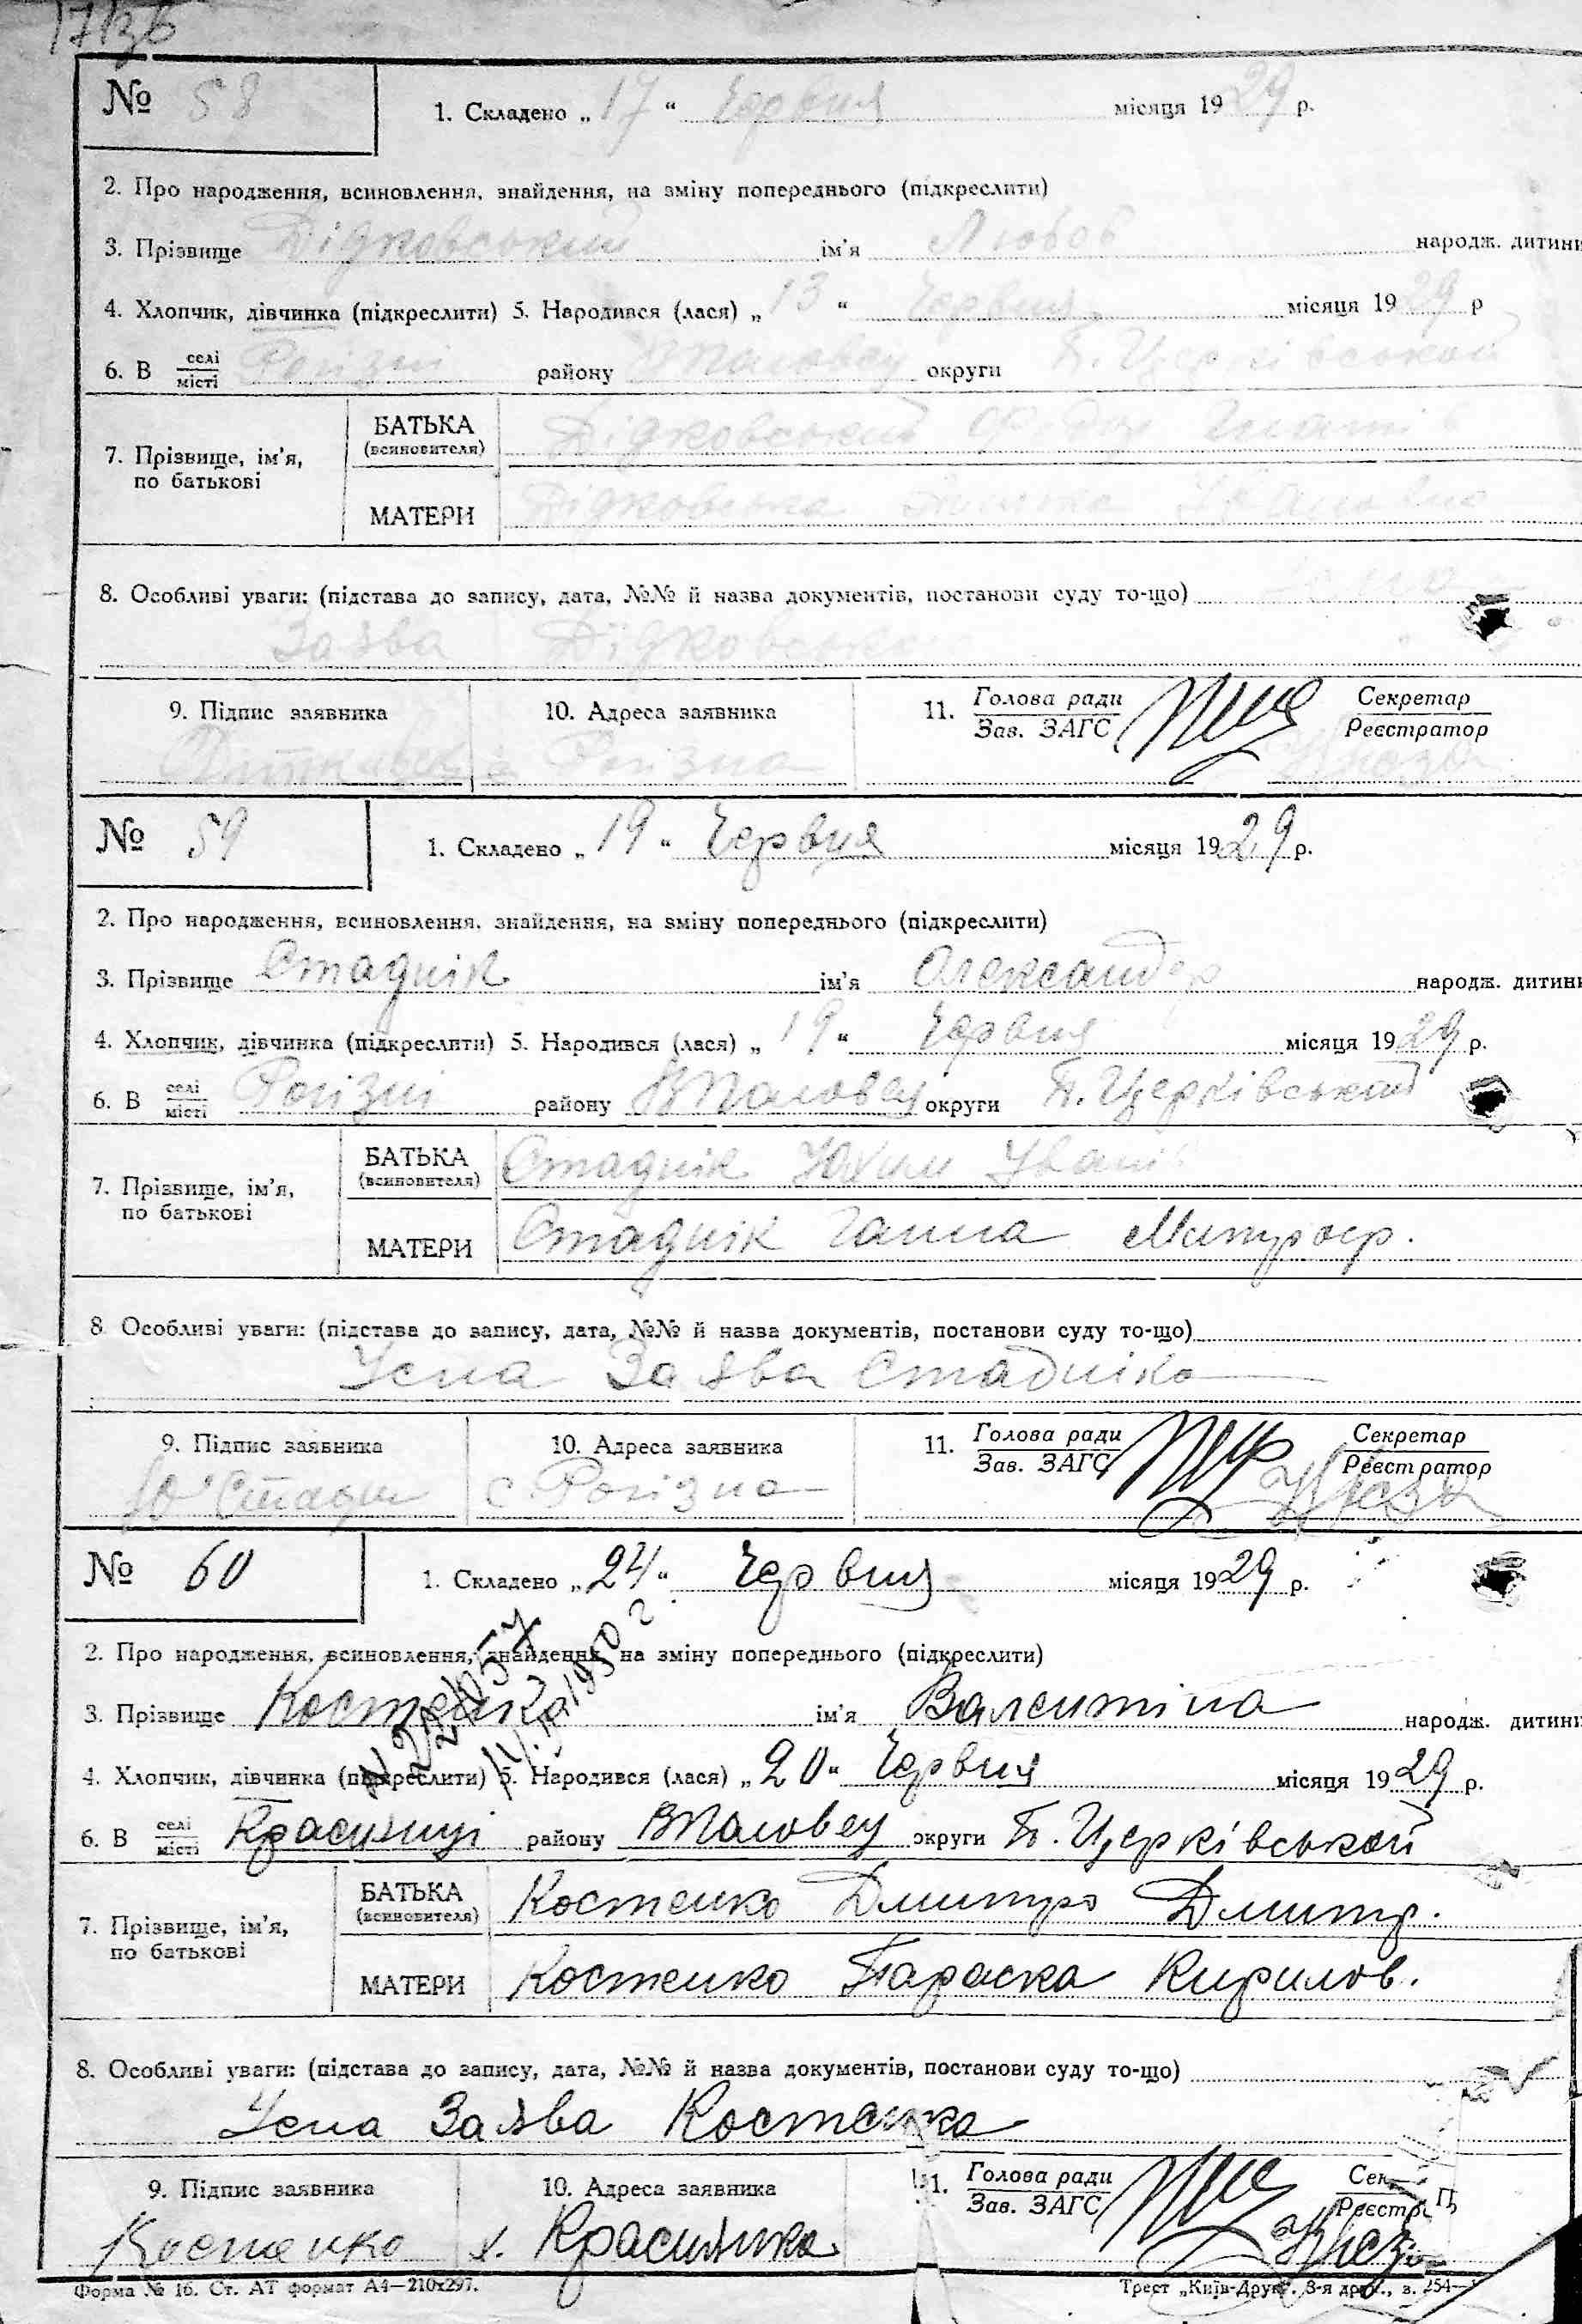 17/36
№ 58 1. Складено „17“ Червня місяця 1929 р.
2. Про народження, всиновлення, знайдення, на зміну попереднього (підкреслити)
3. Прізвище Дідковський ім'я Любов народж. дитини
4. Хлопчик, дівчинка (підкреслити) 5. Народився (лася) „13“ Червня місяця 1929 р
6. В селі/місті Рогізні району ВПоловец округи Б. Церківської
7. Прізвище, ім'я, по батькові
БАТЬКА (всиновителя) Дідковський
МАТЕРИ Дідковська Івановна
8. Особливі уваги: (підстава до запису, дата, №№ й назва документів, постанови суду то-що)
Заява Дідковсько
9. Підпис заявника 10. Адреса заявника 11. Голова ради Секретар
Зав. ЗАГС Реєстратор
Рогізна
№ 59 1. Складено „19“ Червня місяця 1929 р.
2. Про народження, всиновлення, знайдення, на зміну попереднього (підкреслити)
3. Прізвище Стаднік ім'я Олександр народж. дитини
4. Хлопчик, дівчинка (підкреслити) 5. Народився (лася) „19“ Червня місяця 1929 р.
6. В селі/місті Рогізні району ВПоловец округи Б. Церківської
7. Прізвище, ім'я, по батькові
БАТЬКА (всиновителя) Стаднік Юхим Іванів
МАТЕРИ Стаднік Ганна Митроф.
8. Особливі уваги: (підстава до запису, дата, №№ й назва документів, постанови суду то-що)
Усна Заява Стадніка
9. Підпис заявника 10. Адреса заявника 11. Голова ради Секретар
Зав. ЗАГС Реєстратор
Ю Стадн с. Рогізна
№ 60 1. Складено „24“ Червня місяця 1929 р.
2. Про народження, всиновлення, знайдення, на зміну попереднього (підкреслити)
3. Прізвище Костенко ім'я Валентіна народж. дитини
4. Хлопчик, дівчинка (підкреслити) 5. Народився (лася) „20“ Червня місяця 1929 р.
6. В селі/місті Красилиці району ВПоловец округи Б. Церківської
7. Прізвище, ім'я, по батькові
БАТЬКА (всиновителя) Костенко Дмитро Дмитр.
МАТЕРИ Костенко Параска Кирилов.
8. Особливі уваги: (підстава до запису, дата, №№ й назва документів, постанови суду то-що)
Усна Заява Костенка
9. Підпис заявника 10. Адреса заявника 11. Голова ради
Зав. ЗАГС
Костенко х. Красилика
Форма № 16. Ст. АТ формат А4—210х297. Трест „Київ-Друк“. 3-я друк., з. 254—